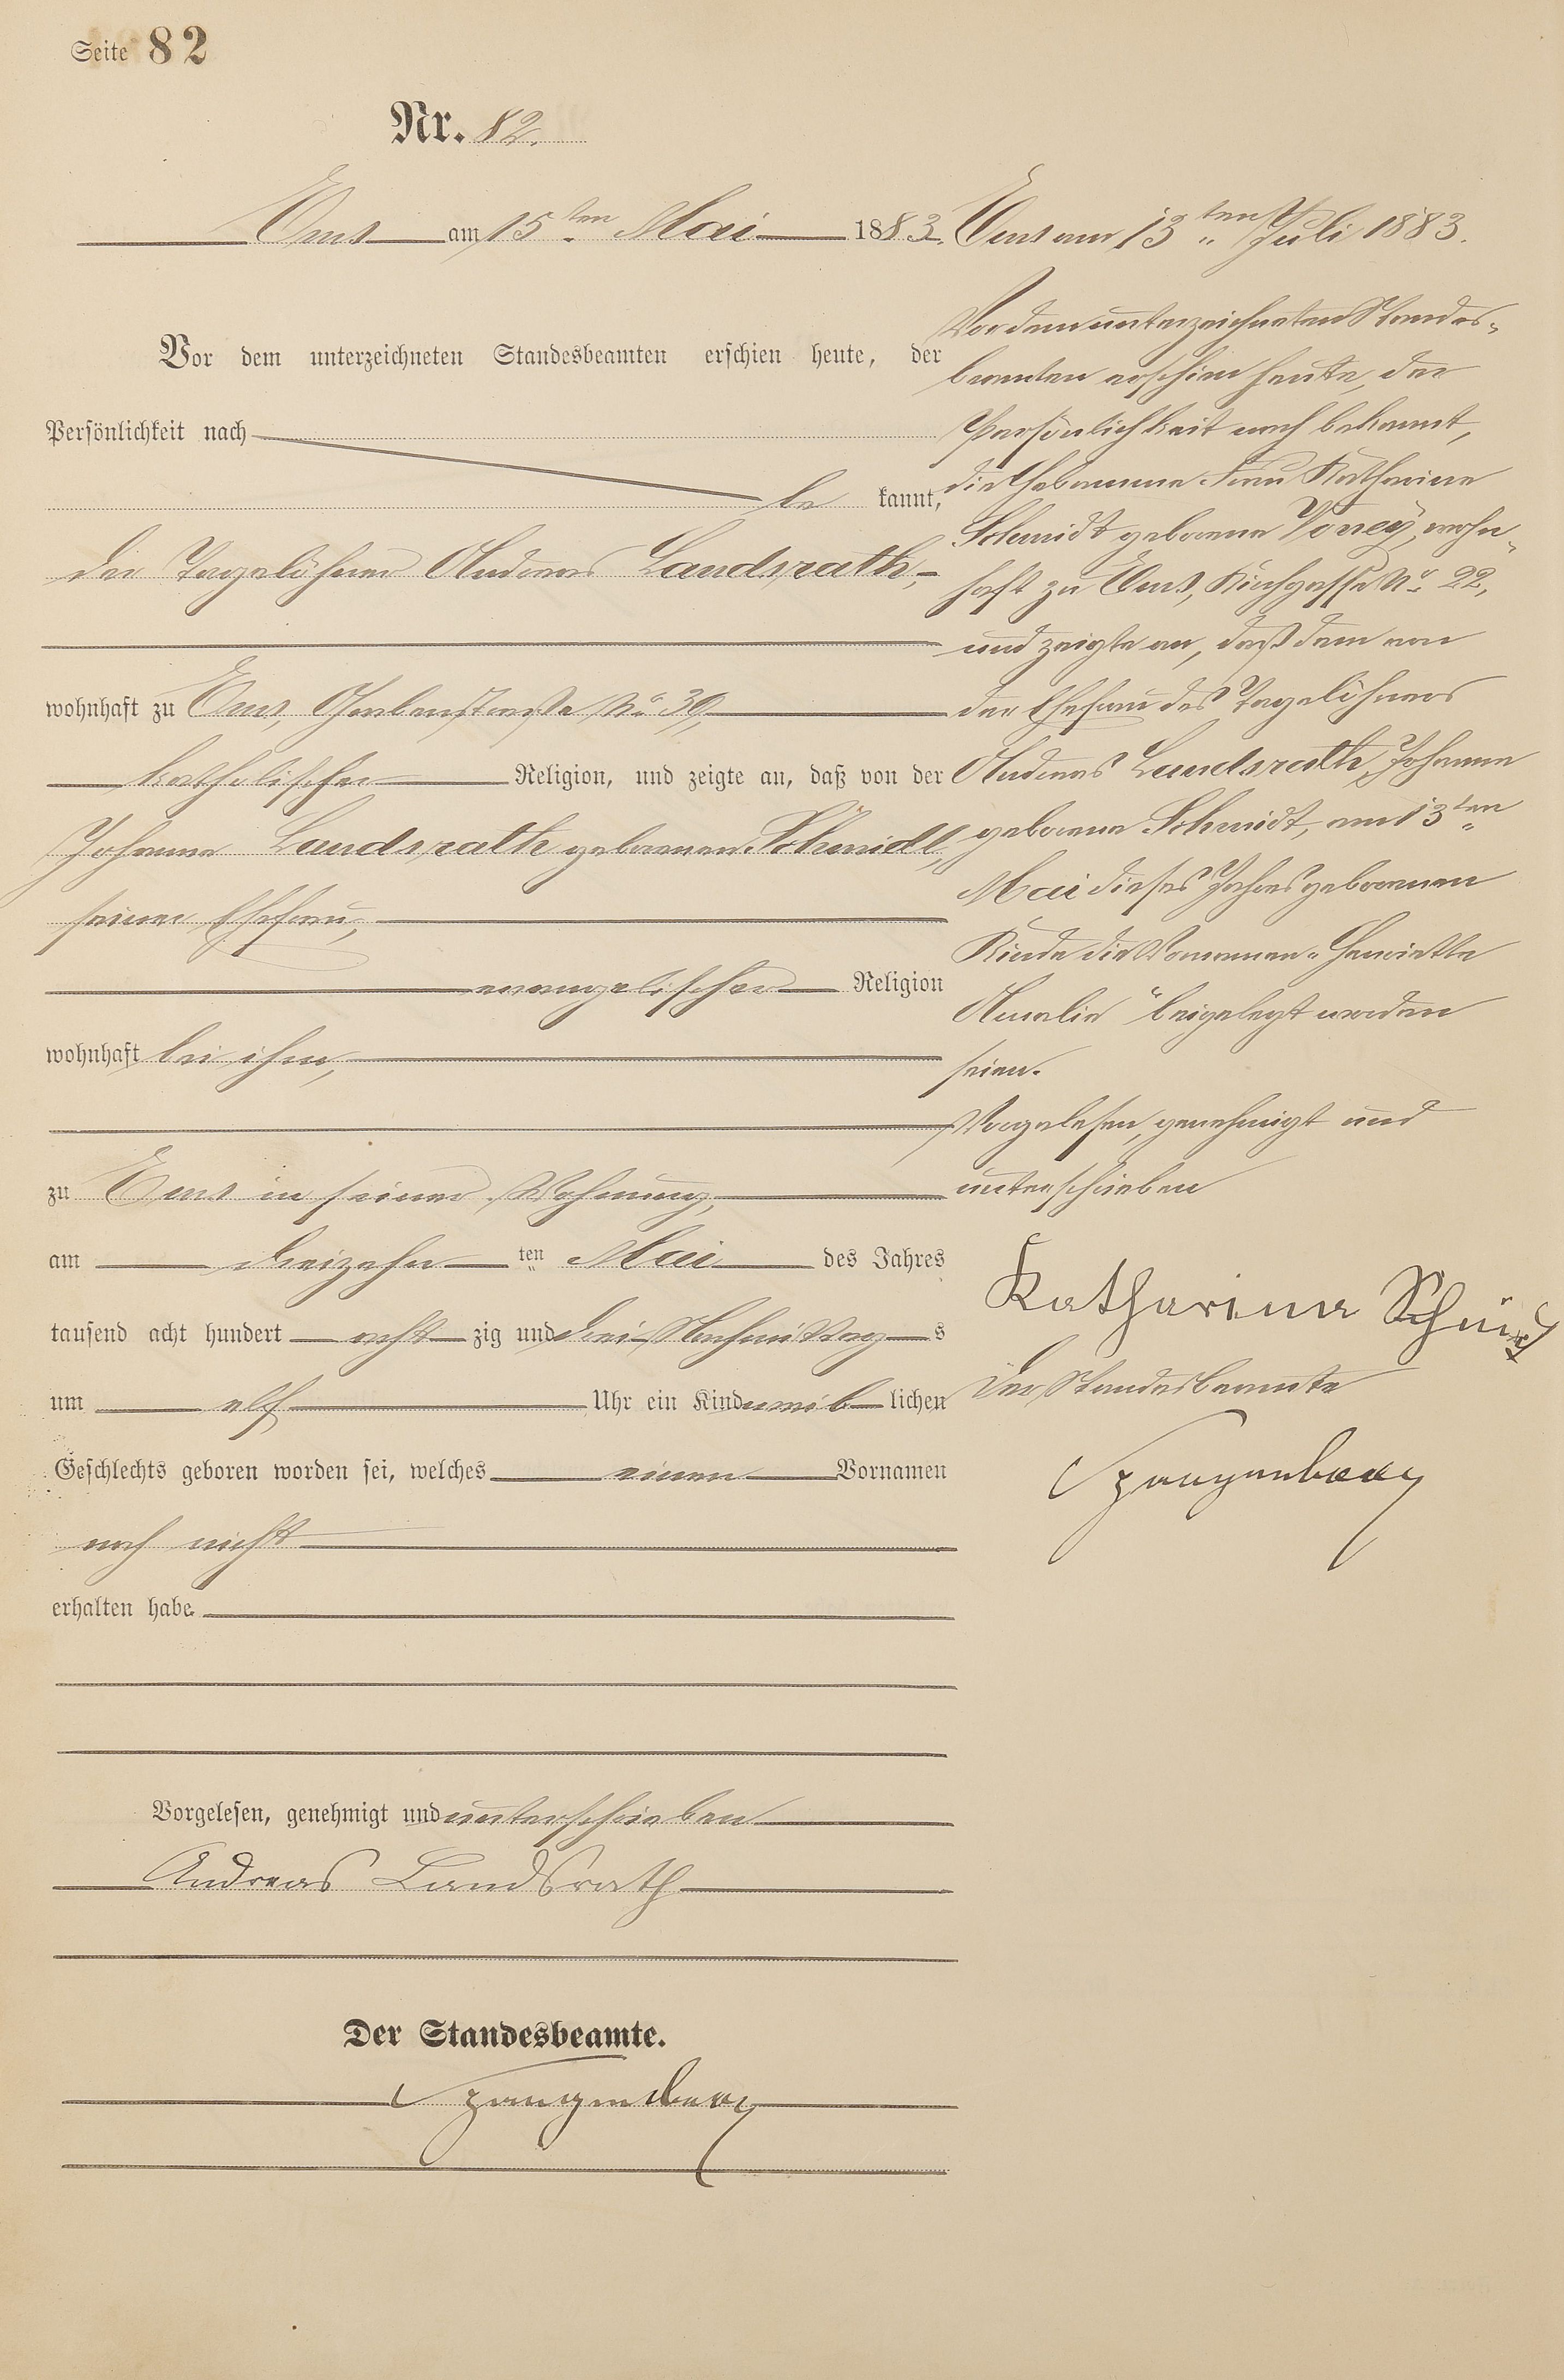 Seite 82
Nr. 82.
Ems am 15ten Mai 1883.
Vor dem unterzeichneten Standesbeamten erschien heute, der
Persönlichkeit nach
be kannt,
der Tagelöhner Andreas Landsrath,
wohnhaft zu Ems, Grabenstraße No 39,
katholischer Religion, und zeigte an, daß von der
Johanna Landsrath geborenen Schmidt,
seiner Ehefrau,
evangelischer Religion
wohnhaft bei ihm,
zu Ems in seiner Wohnung,
am dreizehn ten Mai des Jahres
tausend acht hundert acht zig und drei Nachmittag s
um elf Uhr ein Kind weib lichen
Geschlechts geboren worden sei, welches einen Vornamen
noch nicht
erhalten habe.
Vorgelesen, genehmigt und unterschrieben
Andreas Landsrath
Der Standesbeamte.
Spangenberg
Ems am 13ten Juli 1883.
Vor dem unterzeichneten Standes-
beamten erschien heute, der
Persönlichkeit nach bekannt,
die Hebamme Frau Katharina
Schmidt geborene wohn-
haft zu Ems, Kirchgasse No 22,
und zeigte an, daß dem von
der Ehefrau des Tagelöhners
Andreas Landsrath, Johanna
geborene Schmidt, am 13ten
Mai dieses Jahres geborenen
Kinde die Vornamen "Henriette
Amalie" beigelegt worden
seien.
Vorgelesen, genehmigt und
unterschrieben
Katharina
Der Standesbeamte
Spangenberg